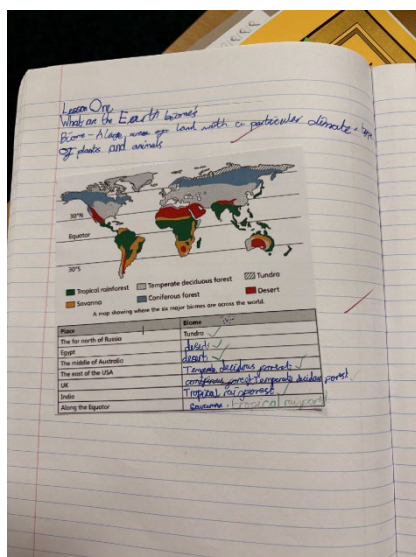 Lesson One
What are the Earth biomes
Biome - A large area of land with a particular climate +
of plants and animals
30°N
Equator
30°S
Tropical rainforest
Temperate deciduous forest
Tundra
Savanna
Coniferous forest
Desert
A map showing where the six major biomes are across the world.
Place Biome
The far north of Russia Tundra
Egypt desert
The middle of Australia desert
The east of the USA Temperate deciduous forest
UK coniferous forest Temperate deciduous forest
India Tropical rainforest
Along the Equator savanna tropical